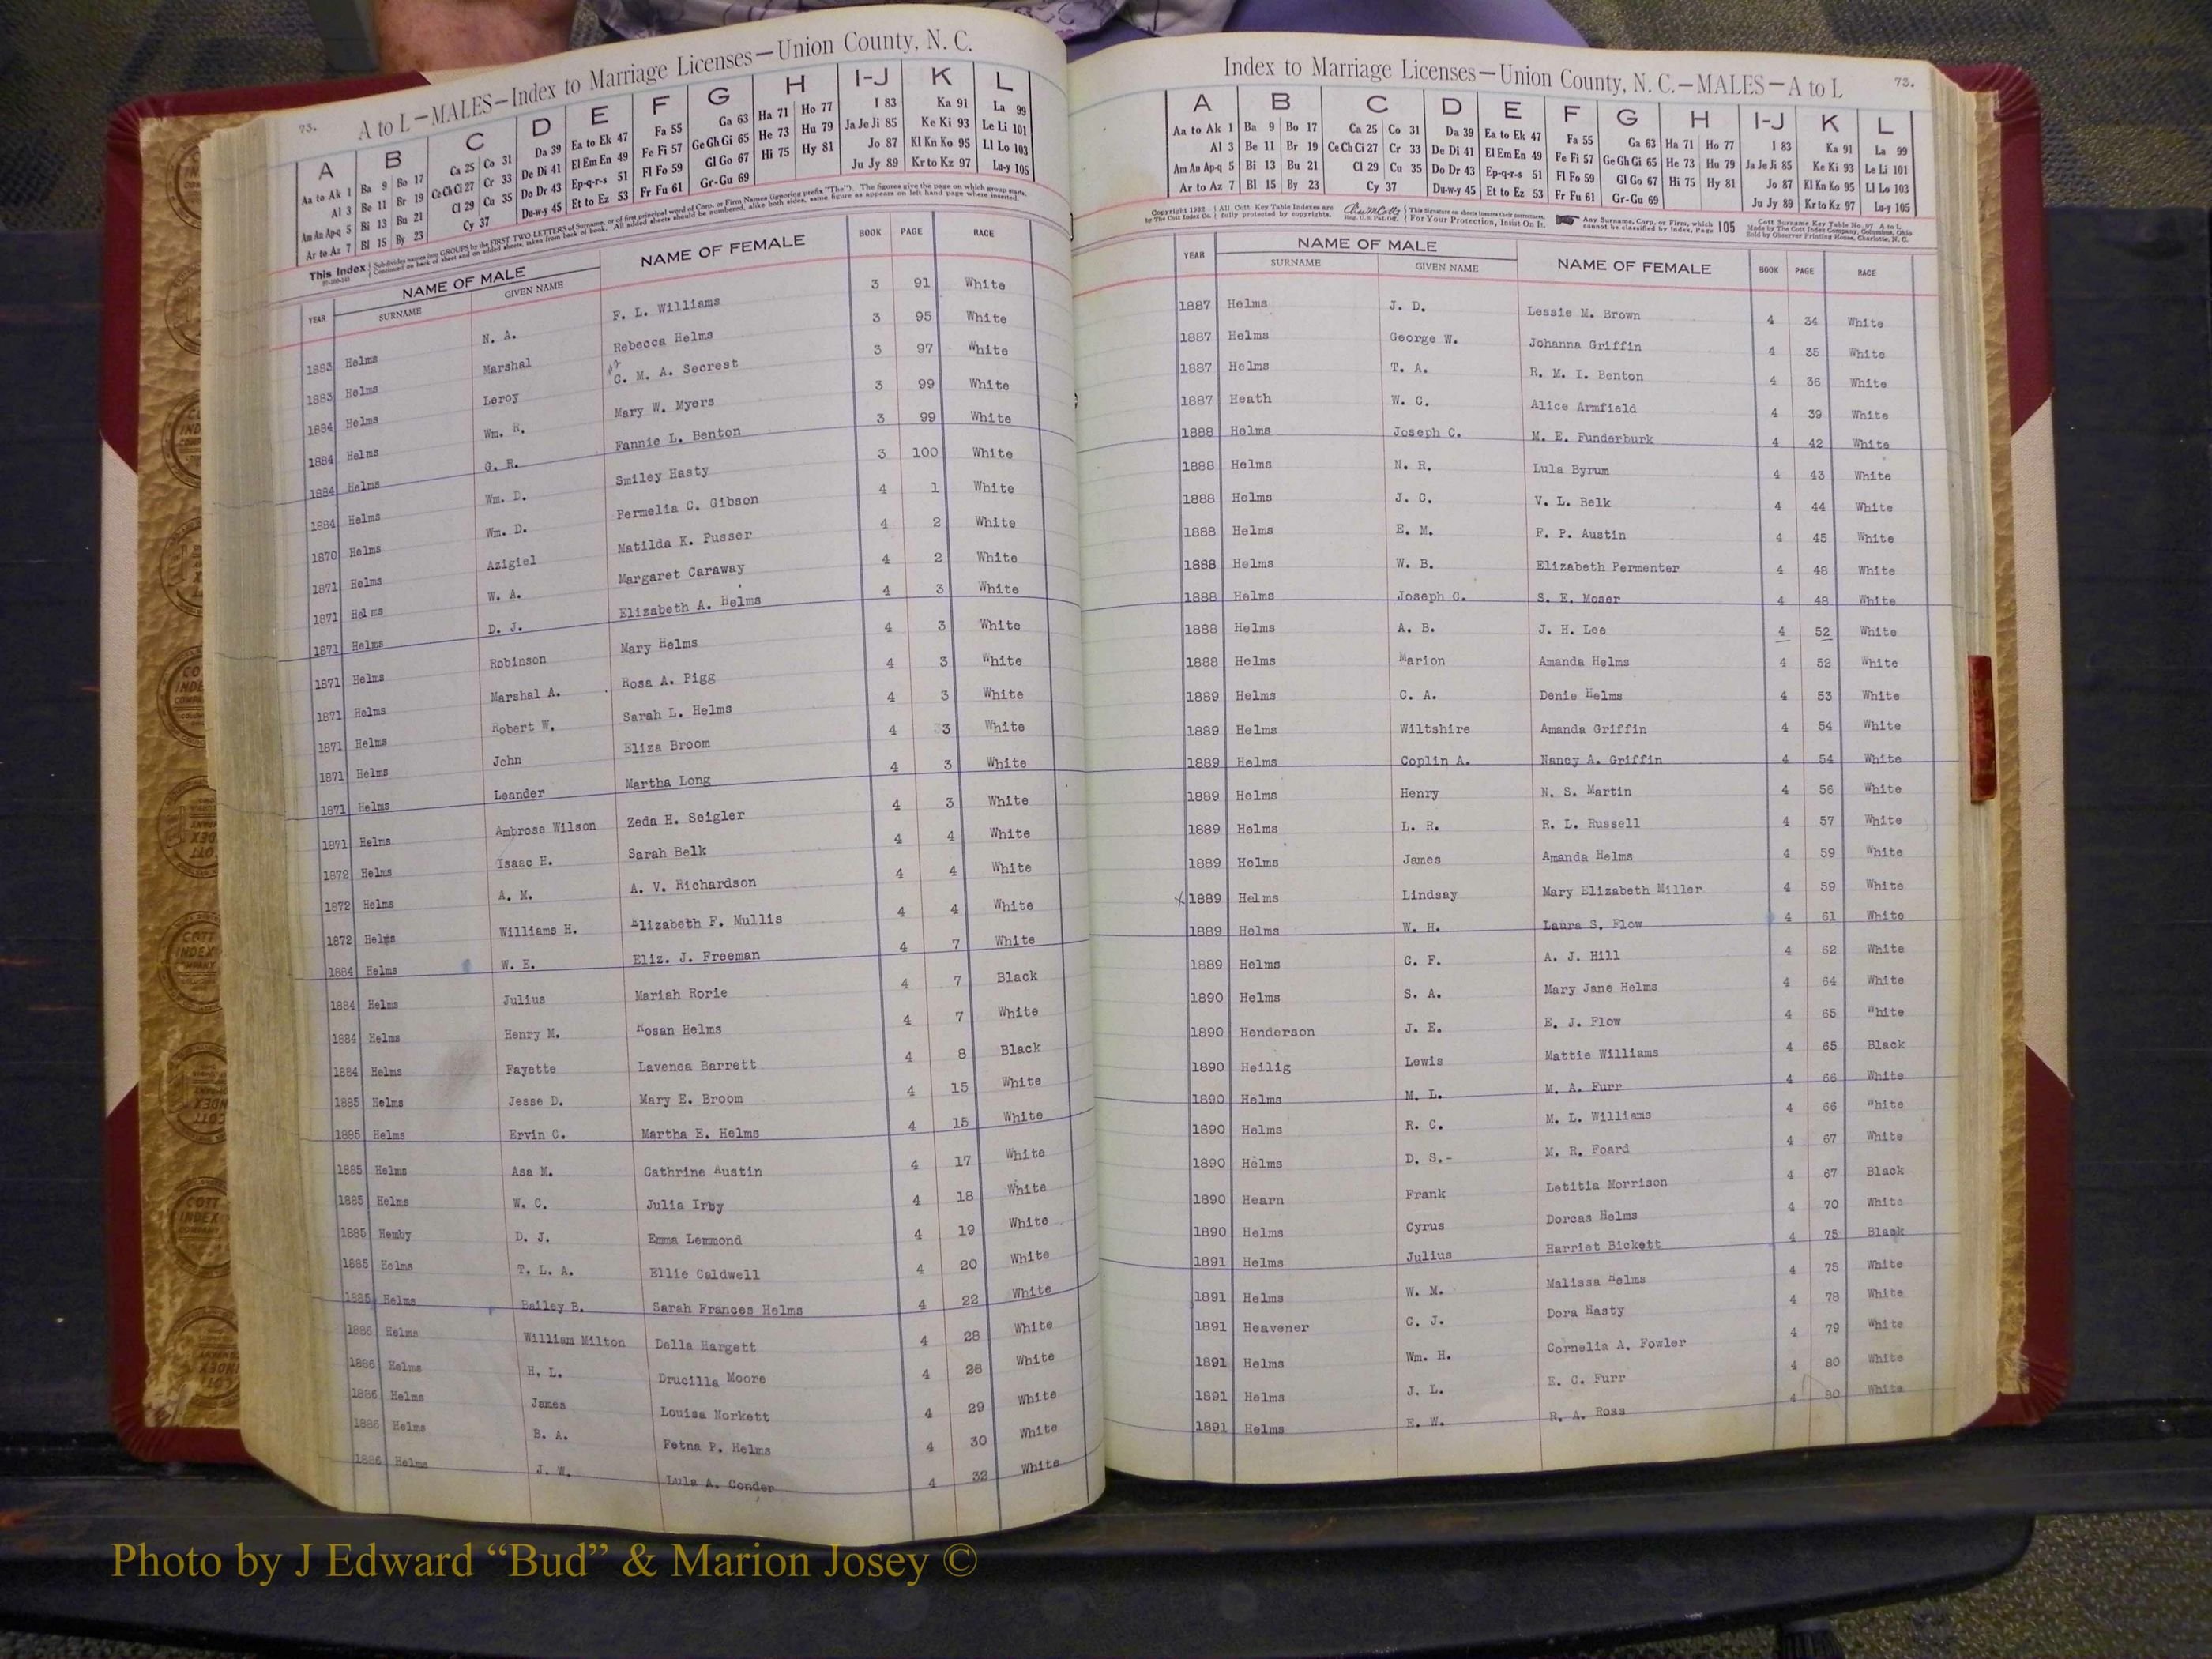 A to L—MALES—Index to Marriage Licenses—Union County, N. C.
73.
A B C D E F G H I-J K L
Aa to Ak 1 Ba 9 Bo 17 Ca 25 Co 31 Da 39 Ea to Ek 47 Fa 55 Ga 63 Ha 71 Ho 77 I 83 Ka 91 La 99
Al 3 Be 11 Br 19 Ce Ch Ci 27 Cr 33 De Di 41 El Em En 49 Fe Fi 57 Ge Gh Gi 65 He 73 Hu 79 Ja Je Ji 85 Ke Ki 93 Le Li 101
Am An Ap-q 5 Bi 13 Bu 21 Cl 29 Cu 35 Do Dr 43 Ep-q-r-s 51 Fl Fo 59 Gl Go 67 Hi 75 Hy 81 Jo 87 Kl Kn Ko 95 Ll Lo 103
Ar to Az 7 Bl 15 By 23 Cy 37 Du-w-y 45 Et to Ez 53 Fr Fu 61 Gr-Gu 69 Ju Jy 89 Kr to Kz 97 Lu-y 105
This Index Subdivides names into GROUPS by the FIRST TWO LETTERS of Surname, or of first principal word of Corp. or Firm Names (ignoring prefix "The"). The figures give the page on which group starts.
Continued on back of sheet and on added sheets, taken from back of book. All added sheets should be numbered, alike both sides, same figure as appears on left hand page where inserted.
YEAR NAME OF MALE NAME OF FEMALE BOOK PAGE RACE
SURNAME GIVEN NAME
1883 Helms N. A. F. L. Williams 3 91 White
1883 Helms Marshal Rebecca Helms 3 95 White
1884 Helms Leroy C. M. A. Secrest 3 97 White
1884 Helms Wm. R. Mary W. Myers 3 99 White
1884 Helms G. R. Fannie L. Benton 3 99 White
1884 Helms Wm. D. Smiley Hasty 3 100 White
1870 Helms Wm. D. Permelia C. Gibson 4 1 White
1871 Helms Azigiel Matilda K. Pusser 4 2 White
1871 Helms W. A. Margaret Caraway 4 2 White
1871 Helms D. J. Elizabeth A. Helms 4 3 White
1871 Helms Robinson Mary Helms 4 3 White
1871 Helms Marshal A. Rosa A. Pigg 4 3 White
1871 Helms Robert W. Sarah L. Helms 4 3 White
1871 Helms John Eliza Broom 4 3 White
1871 Helms Leander Martha Long 4 3 White
1871 Helms Ambrose Wilson Zeda H. Seigler 4 3 White
1872 Helms Isaac H. Sarah Belk 4 4 White
1872 Helms A. M. A. V. Richardson 4 4 White
1872 Helms Williams H. Elizabeth F. Mullis 4 4 White
1884 Helms W. E. Eliz. J. Freeman 4 7 White
1884 Helms Julius Mariah Rorie 4 7 Black
1884 Helms Henry M. Rosan Helms 4 7 White
1884 Helms Fayette Lavenea Barrett 4 8 Black
1885 Helms Jesse D. Mary E. Broom 4 15 White
1885 Helms Ervin C. Martha E. Helms 4 15 White
1885 Helms Asa M. Cathrine Austin 4 17 White
1885 Helms W. C. Julia Irby 4 18 White
1885 Hemby D. J. Emma Lemmond 4 19 White
1885 Helms T. L. A. Ellie Caldwell 4 20 White
1885 Helms Bailey B. Sarah Frances Helms 4 22 White
1886 Helms William Milton Della Hargett 4 28 White
1886 Helms H. L. Drucilla Moore 4 28 White
1886 Helms James Louisa Norkett 4 29 White
1886 Helms B. A. Fetna P. Helms 4 30 White
1886 Helms J. W. Lula A. Conder 4 32 White
Index to Marriage Licenses—Union County, N. C.—MALES—A to L
73.
A B C D E F G H I-J K L
Aa to Ak 1 Ba 9 Bo 17 Ca 25 Co 31 Da 39 Ea to Ek 47 Fa 55 Ga 63 Ha 71 Ho 77 I 83 Ka 91 La 99
Al 3 Be 11 Br 19 Ce Ch Ci 27 Cr 33 De Di 41 El Em En 49 Fe Fi 57 Ge Gh Gi 65 He 73 Hu 79 Ja Je Ji 85 Ke Ki 93 Le Li 101
Am An Ap-q 5 Bi 13 Bu 21 Cl 29 Cu 35 Do Dr 43 Ep-q-r-s 51 Fl Fo 59 Gl Go 67 Hi 75 Hy 81 Jo 87 Kl Kn Ko 95 Ll Lo 103
Ar to Az 7 Bl 15 By 23 Cy 37 Du-w-y 45 Et to Ez 53 Fr Fu 61 Gr-Gu 69 Ju Jy 89 Kr to Kz 97 Lu-y 105
Copyright 1932 All Cott Key Table Indexes are This Signature on sheets insures their correctness. Any Surname, Corp. or Firm, which 105 Cott Surname Key Table No. 97 A to L
by The Cott Index Co. fully protected by copyrights. Reg. U. S. Pat. Off. For Your Protection, Insist On It. cannot be classified by Index, Page Made by The Cott Index Company, Columbus, Ohio
Sold by Observer Printing House, Charlotte, N. C.
YEAR NAME OF MALE NAME OF FEMALE BOOK PAGE RACE
SURNAME GIVEN NAME
1887 Helms J. D. Lessie M. Brown 4 34 White
1887 Helms George W. Johanna Griffin 4 35 White
1887 Helms T. A. R. M. I. Benton 4 36 White
1887 Heath W. C. Alice Armfield 4 39 White
1888 Helms Joseph C. M. E. Funderburk 4 42 White
1888 Helms N. R. Lula Byrum 4 43 White
1888 Helms J. C. V. L. Belk 4 44 White
1888 Helms E. M. F. P. Austin 4 45 White
1888 Helms W. B. Elizabeth Permenter 4 48 White
1888 Helms Joseph C. S. E. Moser 4 48 White
1888 Helms A. B. J. H. Lee 4 52 White
1888 Helms Marion Amanda Helms 4 52 White
1889 Helms C. A. Denie Helms 4 53 White
1889 Helms Wiltshire Amanda Griffin 4 54 White
1889 Helms Coplin A. Nancy A. Griffin 4 54 White
1889 Helms Henry N. S. Martin 4 56 White
1889 Helms L. R. R. L. Russell 4 57 White
1889 Helms James Amanda Helms 4 59 White
x 1889 Helms Lindsay Mary Elizabeth Miller 4 59 White
1889 Helms W. H. Laura S. Flow 4 61 White
1889 Helms C. F. A. J. Hill 4 62 White
1890 Helms S. A. Mary Jane Helms 4 64 White
1890 Henderson J. E. E. J. Flow 4 65 White
1890 Heilig Lewis Mattie Williams 4 65 Black
1890 Helms M. L. M. A. Furr 4 66 White
1890 Helms R. C. M. L. Williams 4 66 White
1890 Helms D. S.- M. R. Foard 4 67 White
1890 Hearn Frank Letitia Morrison 4 67 Black
1890 Helms Cyrus Dorcas Helms 4 70 White
1891 Helms Julius Harriet Bickett 4 75 Black
1891 Helms W. M. Malissa Helms 4 75 White
1891 Heavener C. J. Dora Hasty 4 78 White
1891 Helms Wm. H. Cornelia A. Fowler 4 79 White
1891 Helms J. L. E. C. Furr 4 80 White
1891 Helms E. W. R. A. Ross 4 80 White
Photo by J Edward “Bud” & Marion Josey ©